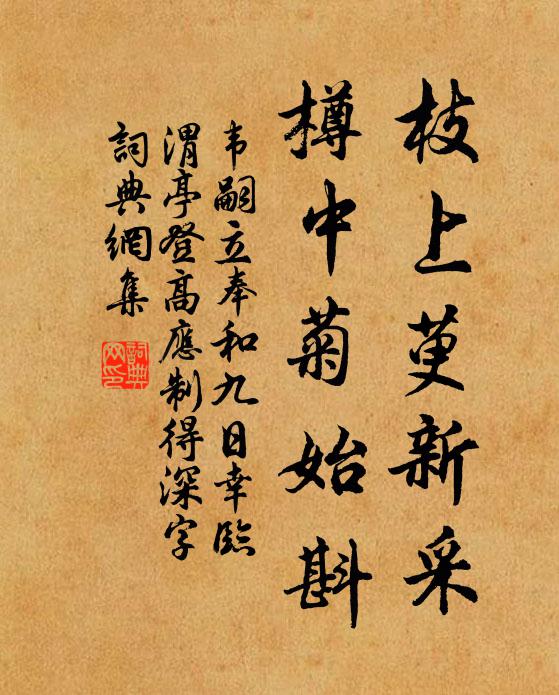 枝上萸新采
樽中菊始斟
韦嗣立奉和九日幸臨
渭亭登高應制得深字
詞典網集
詞典網印